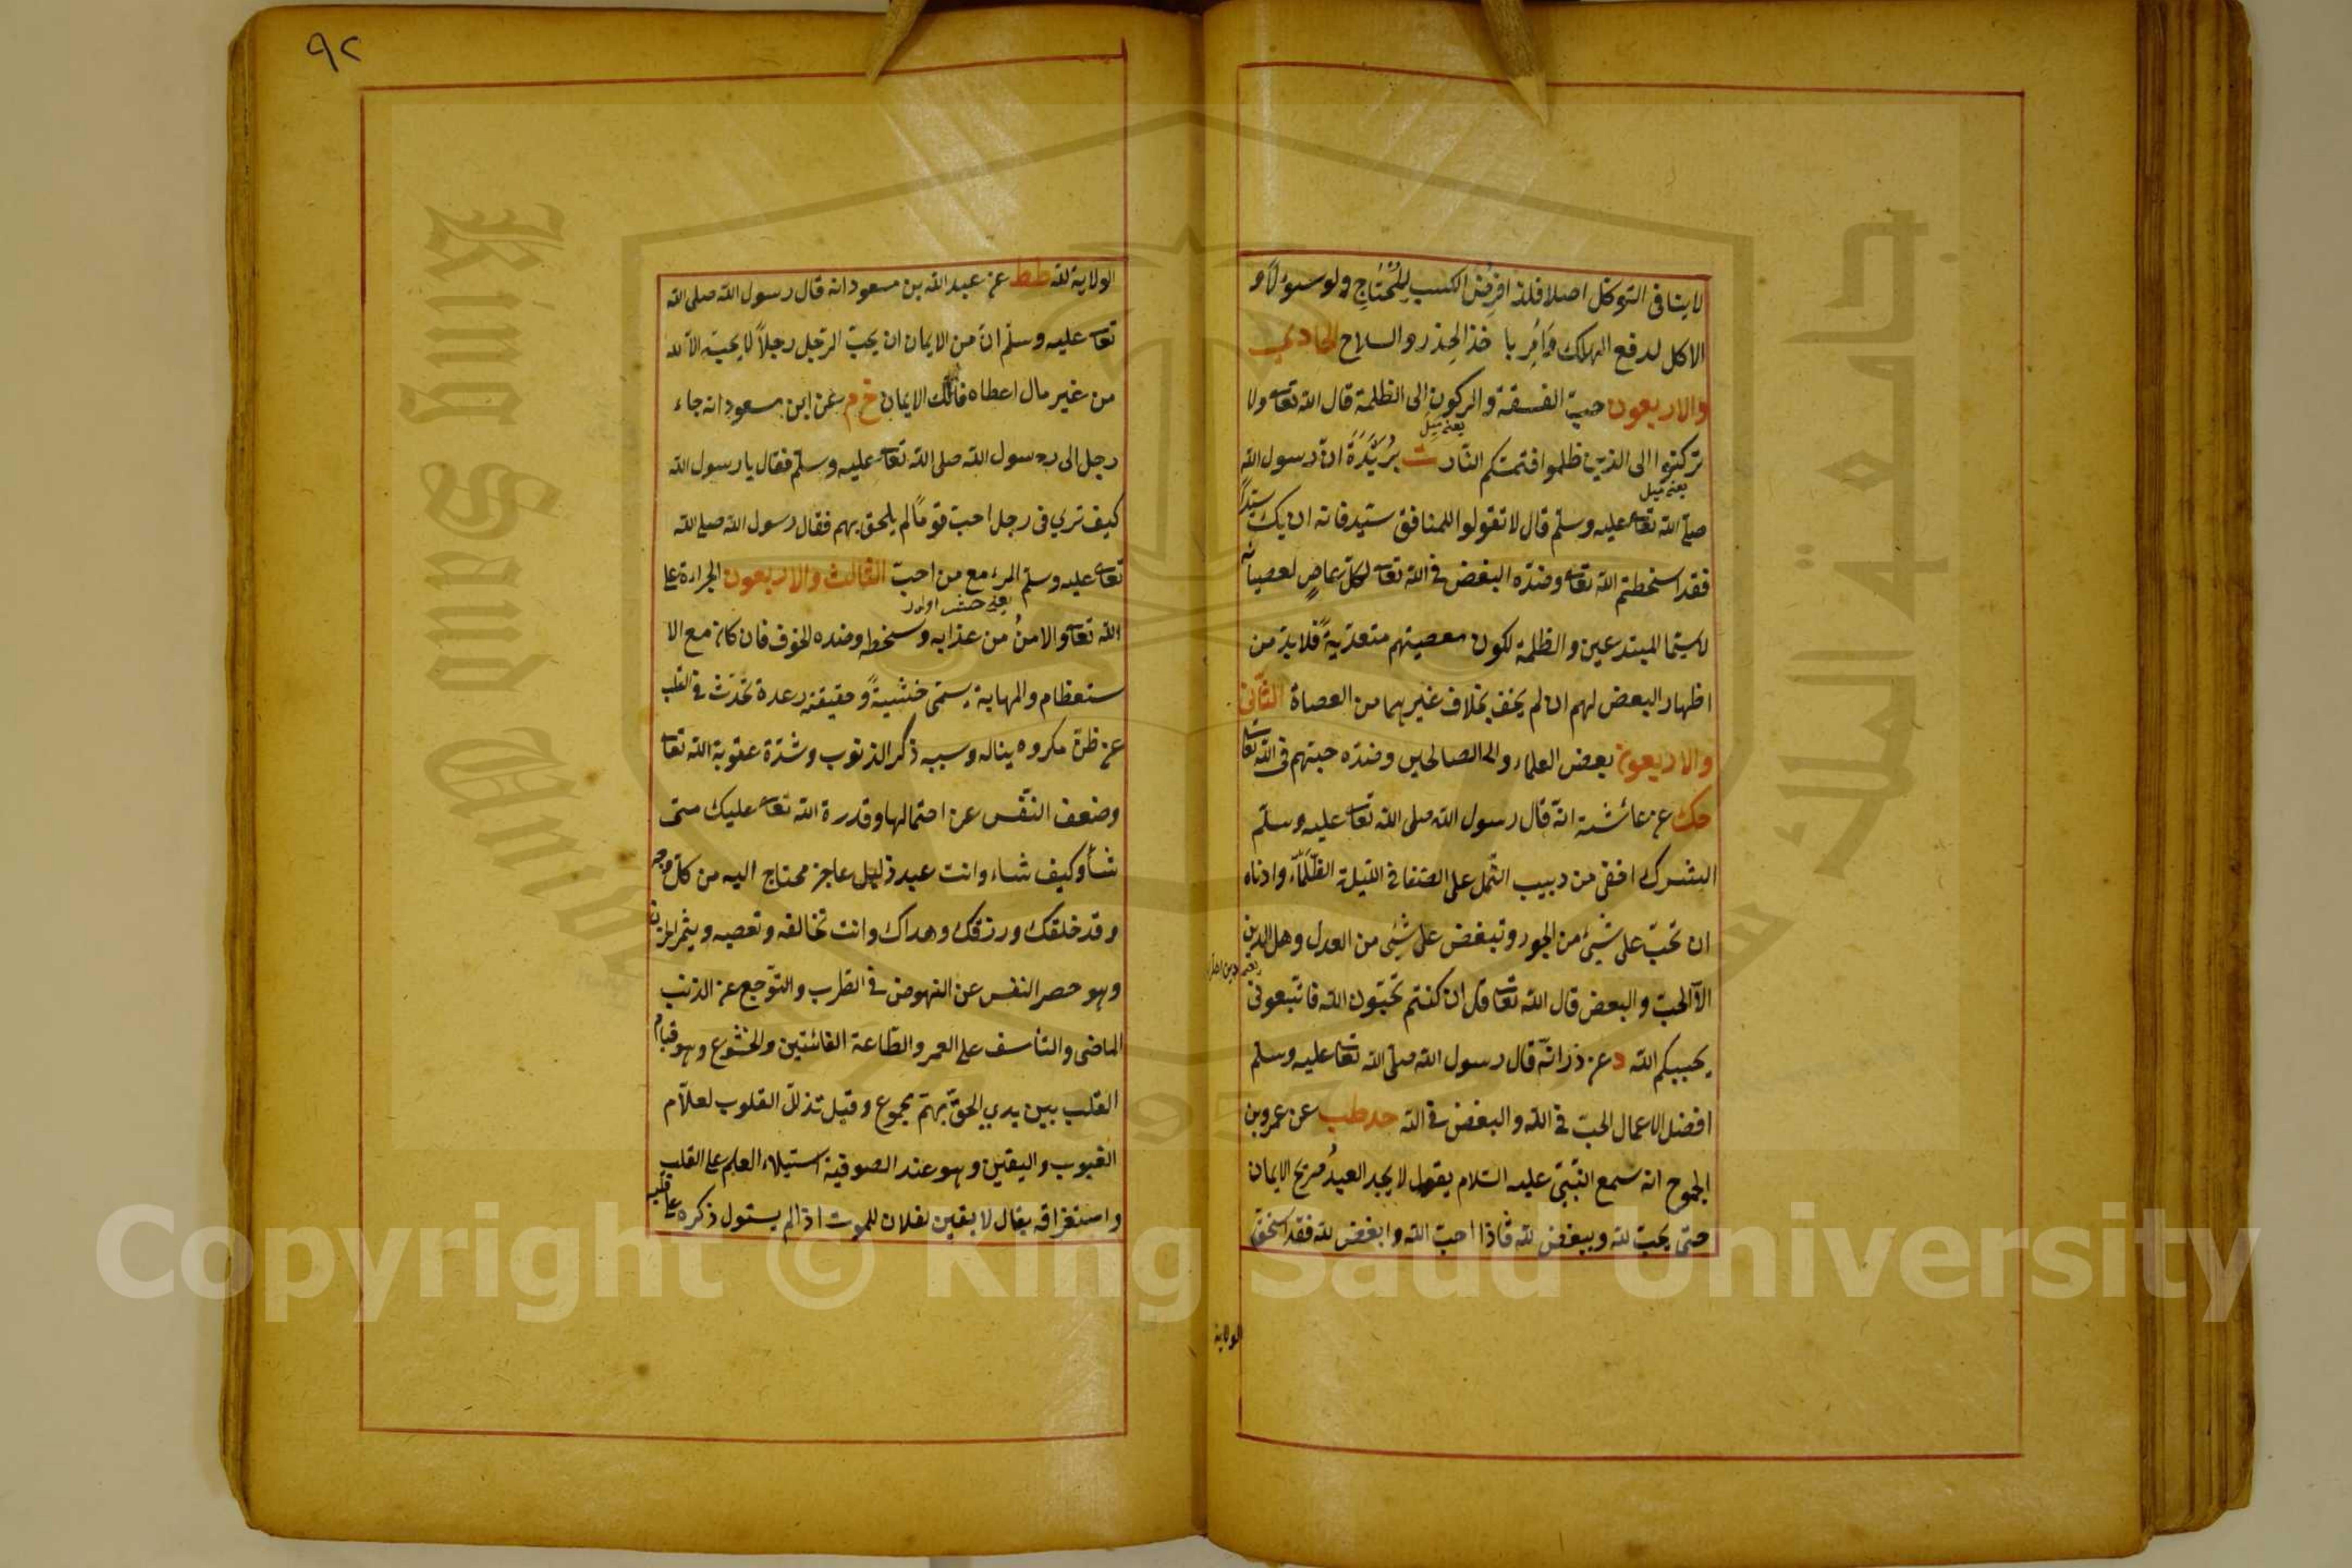 لا ينافى التوكل اصلا فلذا افرض الكسب للمحتاج ولو سوءلا و
الاكل لدفع الهلاك وامر با خذ الحذر والسلاح الحادي
والاربعون حب الفسقة والركون الى الظلمة قال الله تعا ولا
يعنى ميل
تركنوا الى الذين ظلموا فتمتكم النار ت بُرَيْدَةَ ان رسول الله
يعنى ميل
صلى الله تعا عليه وسلم قال لا تقولوا للمنافق سيد فانه ان يك سيدا
فقد اسخطتم الله تعا وضده البغض فى الله تعا لكل عاص لعصيانه
لا سيما المبتدعين والظلمة لكون معصيتهم متعدية فلا بد من
اظهار البعض لهم ان لم يخف بخلاف غيرهما من العصاة الثانى
والاربعون بعض العلماء والصالحين وضده حبهم فى الله تعا
حك عن عائشة انه قال رسول الله صلى الله تعا عليه وسلم
الشرك اخفى من دبيب النمل على الصفا فى الليلة الظلماء وادناه
ان تحب على شيئ من الجور وتبغض على شيئ من العدل وهل الدين
الا الحب والبعض قال الله تعا قل ان كنتم تحبون الله فاتبعونى
يحببكم الله د عن ذر انه قال رسول الله صلى الله تعا عليه وسلم
افضل الاعمال الحب فى الله والبغض فى الله حد طب عن عمرو بن
الجموح انه سمع النبى عليه السلام يقول لا يجد العبد صريح الايمان
حتى يحب لله ويبغض لله فاذا احب الله وابغض لله فقد استحق
الولاية
٩٢
الولاية لله طط عن عبد الله بن مسعود انه قال رسول الله صلى الله
تعا عليه وسلم ان من الايمان ان يحب الرجل رجلاً لا يحبه الا لله
من غير مال اعطاه فذلك الايمان خ م عن ابن مسعود انه جاء
رجل الى رسول الله صلى الله تعا عليه وسلم فقال يا رسول الله
كيف ترى فى رجل احب قوماً لم يلحق بهم فقال رسول الله صلى الله
تعا عليه وسلم المرء مع من احب الثالث والاربعون الجراءة على
الله تعا والامن من عذابه وسخطه وضده الخوف فان كان مع الا
ستعظام والمهابة يسمى خشيةً وحقيقته رعدة تحدث فى القلب
عن ظن مكروه يناله وسببه ذكر الذنوب وشدة عقوبة الله تعا
وضعف النفس عن احتمالها وقدرة الله تعا عليك متى
شأ وكيف شاء وانت عبد ذليل عاجز محتاج اليه من كل وجه
وقد خلقك ورزقك وهداك وانت تخالفه وتعصيه ويثمر الحزن
وهو حصر النفس عن النهوض فى الطرب والتوجع عن الذنب
الماضى والتأسف على العمر والطاعة الفائتين والخشوع وهو قيام
القلب بين يدى الحق بهم مجموع وقيل تذلل القلوب لعلام
الغيوب واليقين وهو عند الصوفية استيلاء العلم على القلب
واستغراقه يقال لا يقين لفلان للموت اذا لم يستول ذكره على قلبه
Copyright © King Saud University